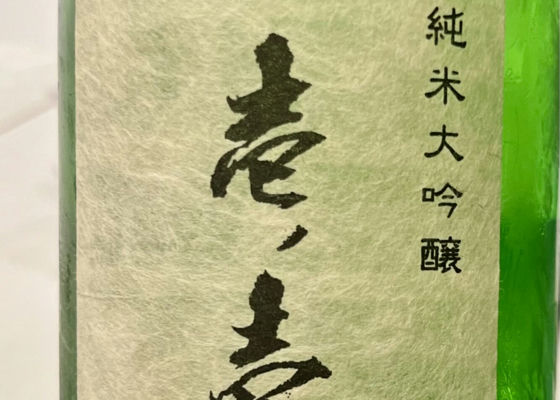 純米大吟醸
壱ノ壱